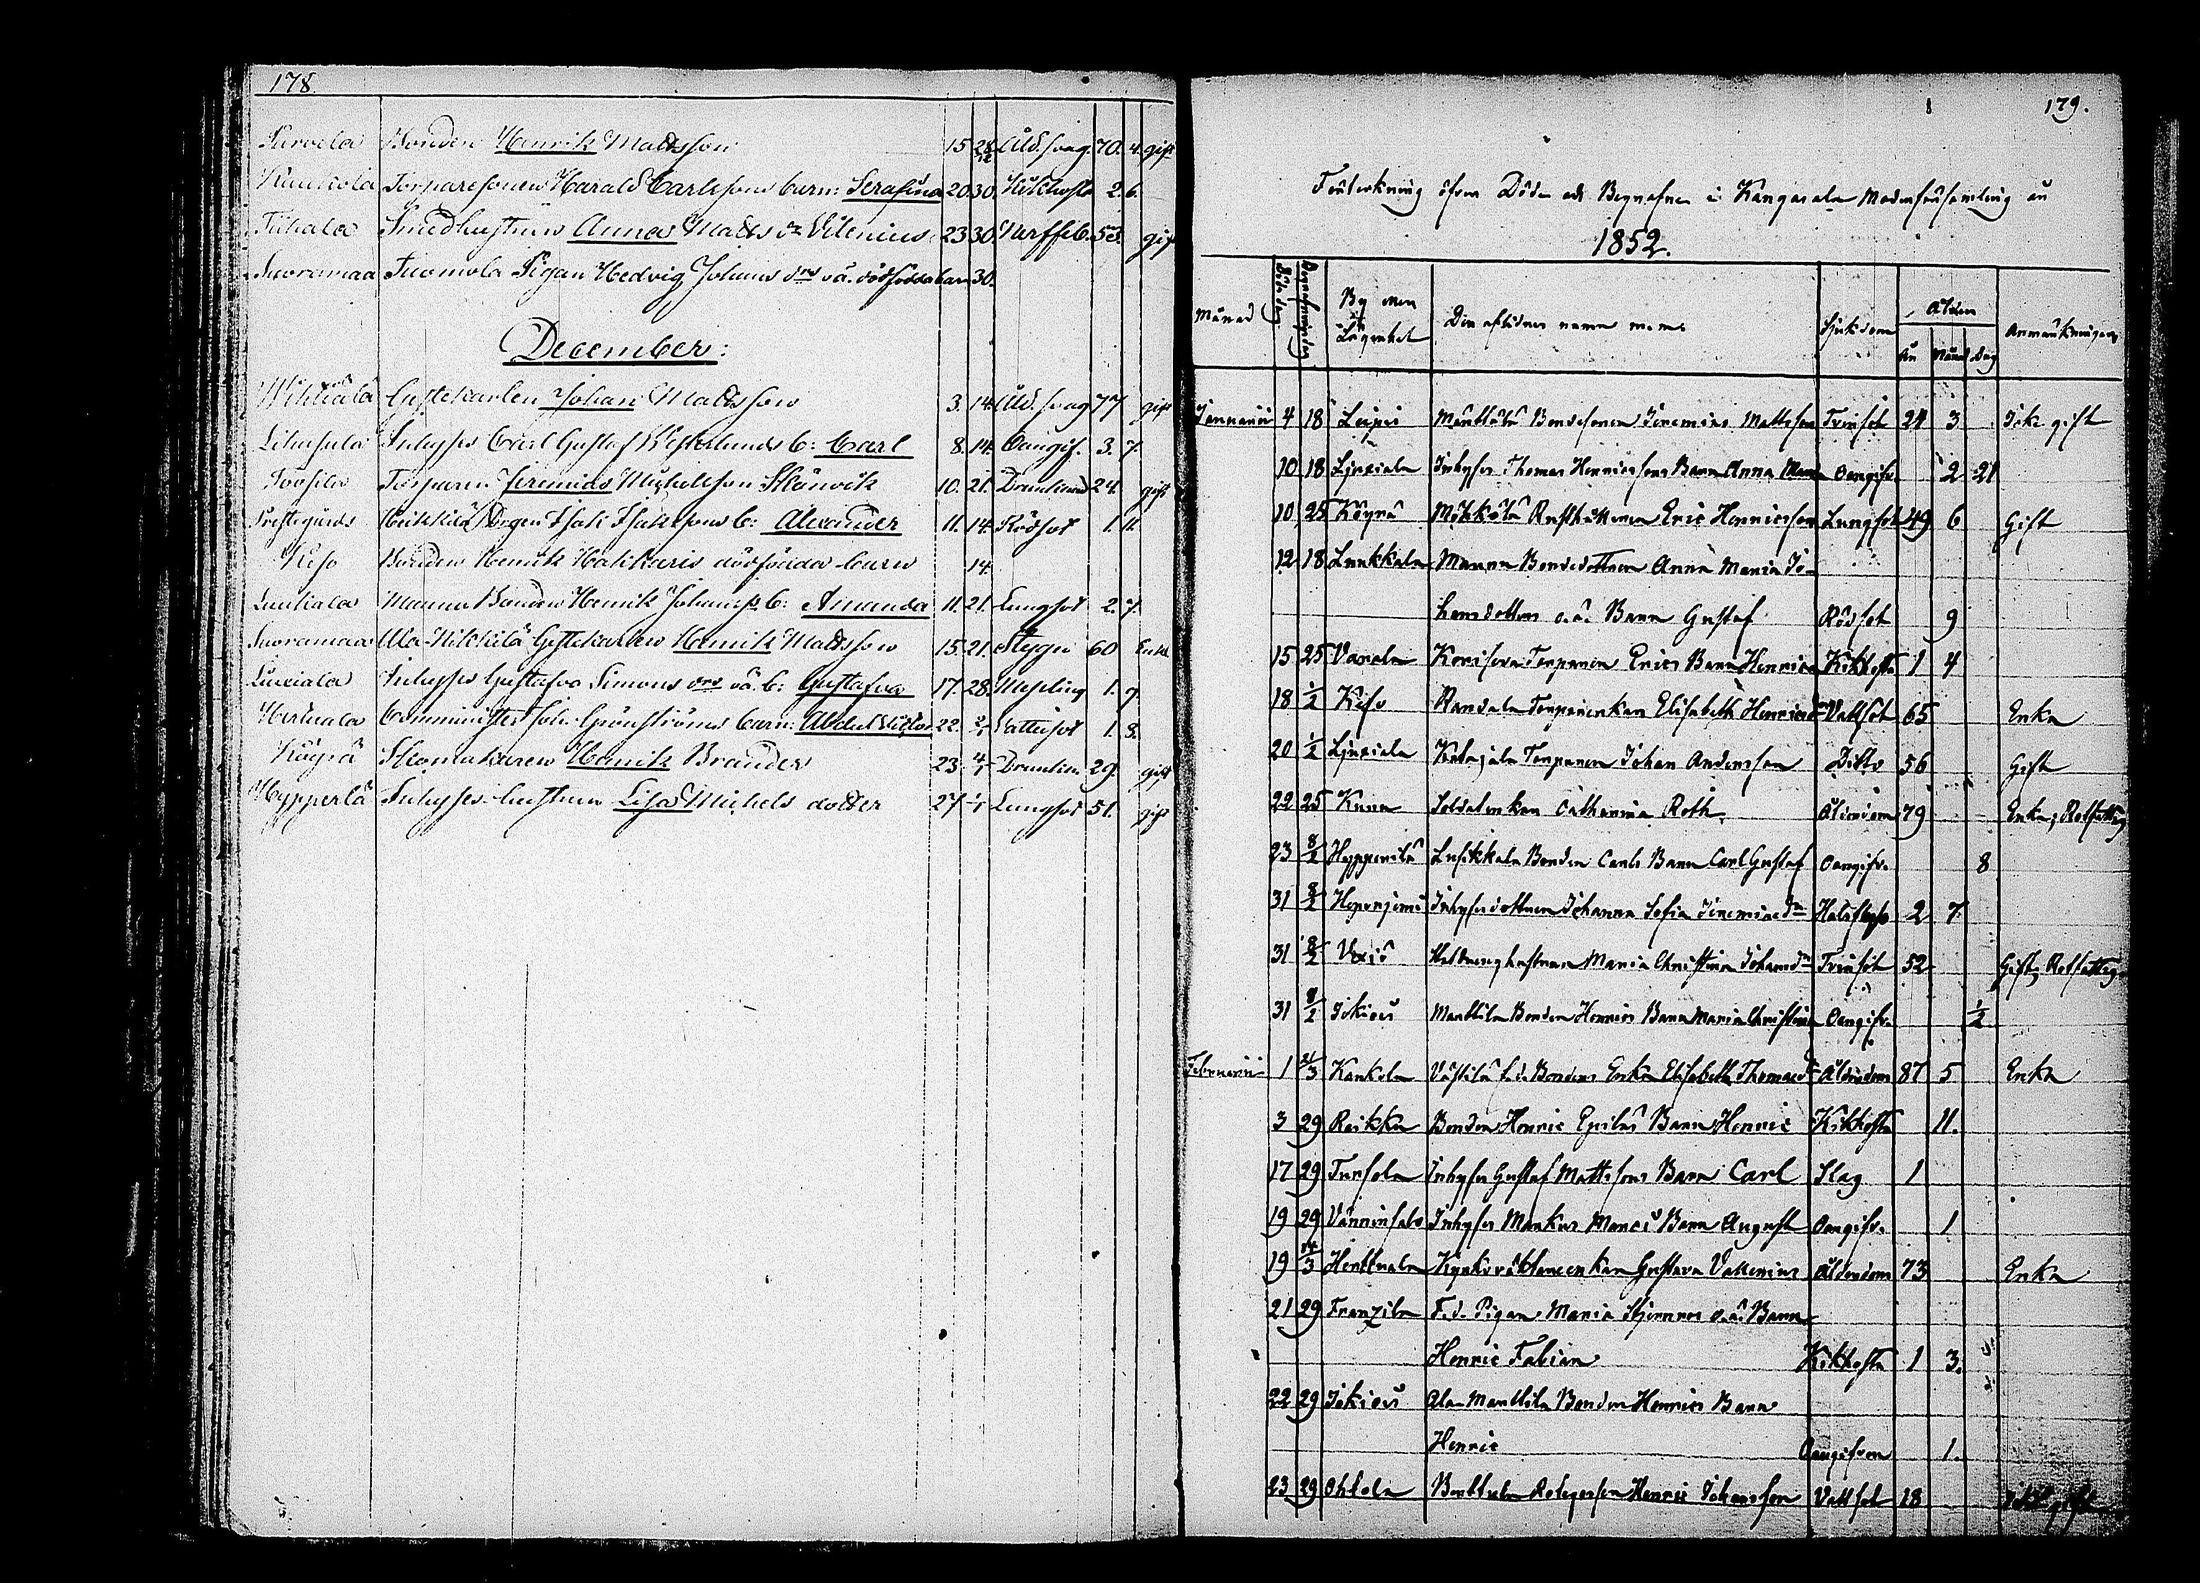 178.
Bonden Henrik Mattsson 15 28/12 Åld. svag. 70. 4. gift
Torparesonen Harald Carlssons barn: Serafina 20 30. Kikhosta 2. 6.
Smedhustrun Anna Matts dr Vilenius 23 30. 53. gift
Suoramaa Tuomola Pigan Hedvig Johans drs oä. dödfödda barn 30.
December:
Gästekarlen Johan Mattsson 3. 14. Åld. svag 77 gift
Liuksiala Inhyses Carl Gustaf Westerlunds b: Carl 8. 14. Oangif. 3. 7.
Torparen Jeremias Michelsson 10. 21. 24. gift
Heikkilä Drgen Isak Isakssons b: Alexander 11. 14. Rödsot 1. 11.
Bonden Henrik dödfödda barn 14.
Mannu Bonden Henrik Johanss. b: Amanda 11. 21. Lungsot 2. 7.
Suoramaa Ala-Nikkilä Gästekarlen Henrik Mattsson 15. 21. Stygn 60 Enkl.
Liuksiala Inhyses Gustafva Simons drs oä. b: Gustafva 17. 28. Messling 1. 7.
Herttuala Comministers Joh: Grönströms barn: 22. Vattusot 1. 3.
Köyrä Henrik Brander 23. 4/1 29. gift
Hypperlä Inhyses-hustrun Lisa Michels dotter 27. 4/1 Lungsot 51. gift
179.
Förteckning öfver Döde och Begrafne i Kangasala Moderförsamling år
1852.
Månad Döds dag Begrafningsdag By eller Lägenhet Den aflidnes namn m.m. Sjukdom Ålder Anmärkningar
År Månad Dag
Januarii 4 18 Leijpi Mänttälä Bondesonen Jeremias Mattsson Tvinsot 24 3 Icke gift
10 18 Ljuxiala Inhyses Thomas Henricssons Barn Anna Maria Oangifv. 2 21
10 25 Köyrä Mökkölä Rusthållaren Eric Henricsson Lungsot 49 6 Gift
12 18 Leukkala Mannu Bondedottren Anna Maria Jo-
hansdotters o.ä. Barn Gustaf Rödsot 9
15 25 Torparen Erics Barn Henrica Kikhosta 1 4
18 1/2 Keso Randala Torpareenkan Elisabeth Henricsdr Vattsot 65 Enka
20 1/2 Ljuxiala Torparen Johan Andersson Ditto 56 Gift
22 25 Kuna Soldatenkan Catharina Roth Ålderdom 79 Enka, Rotfattig
23 8/2 Hypperilä Lusikkala Bonden Carls Barn Carl Gustaf Oangifv. 8
31 8/2 Inhysesdottren Johanna Sofia Jeremiaedr Halsfluss 2 7
31 8/2 Maria Christina Johansdr Tvinsot 52 Gift, Rotfattig
31 8/2 Jokiois Manttila Bonden Henrics Barn Maria Christina Oangifv. 1/2
Februarii 1 21/3 Kankola Västilä f.d. Bondens Enka Elisabeth Thomaedr Ålderdom 87 5 Enka
3 29 Raikku Bonden Henric Barn Henric Kikhosta 11.
17 29 Tursola Inhyses Gustaf Mattssons Barn Carl Slag 1
19 29 Inhyses Markus Barn August Oangifv. 1
19 14/3 Herttuala Kyrkoväktareenkan Gustava Ålderdom 73 Enka
21 29 Franzila F.d. Pigan Maria o.ä. Barn
Henric Fabian Kikhosta 1 3.
22 29 Jokiois Ala-Manttila Bonden Henrics Barn
Henric Oangifven 1.
23 29 Ohtola Henric Johansson Vattsot 18